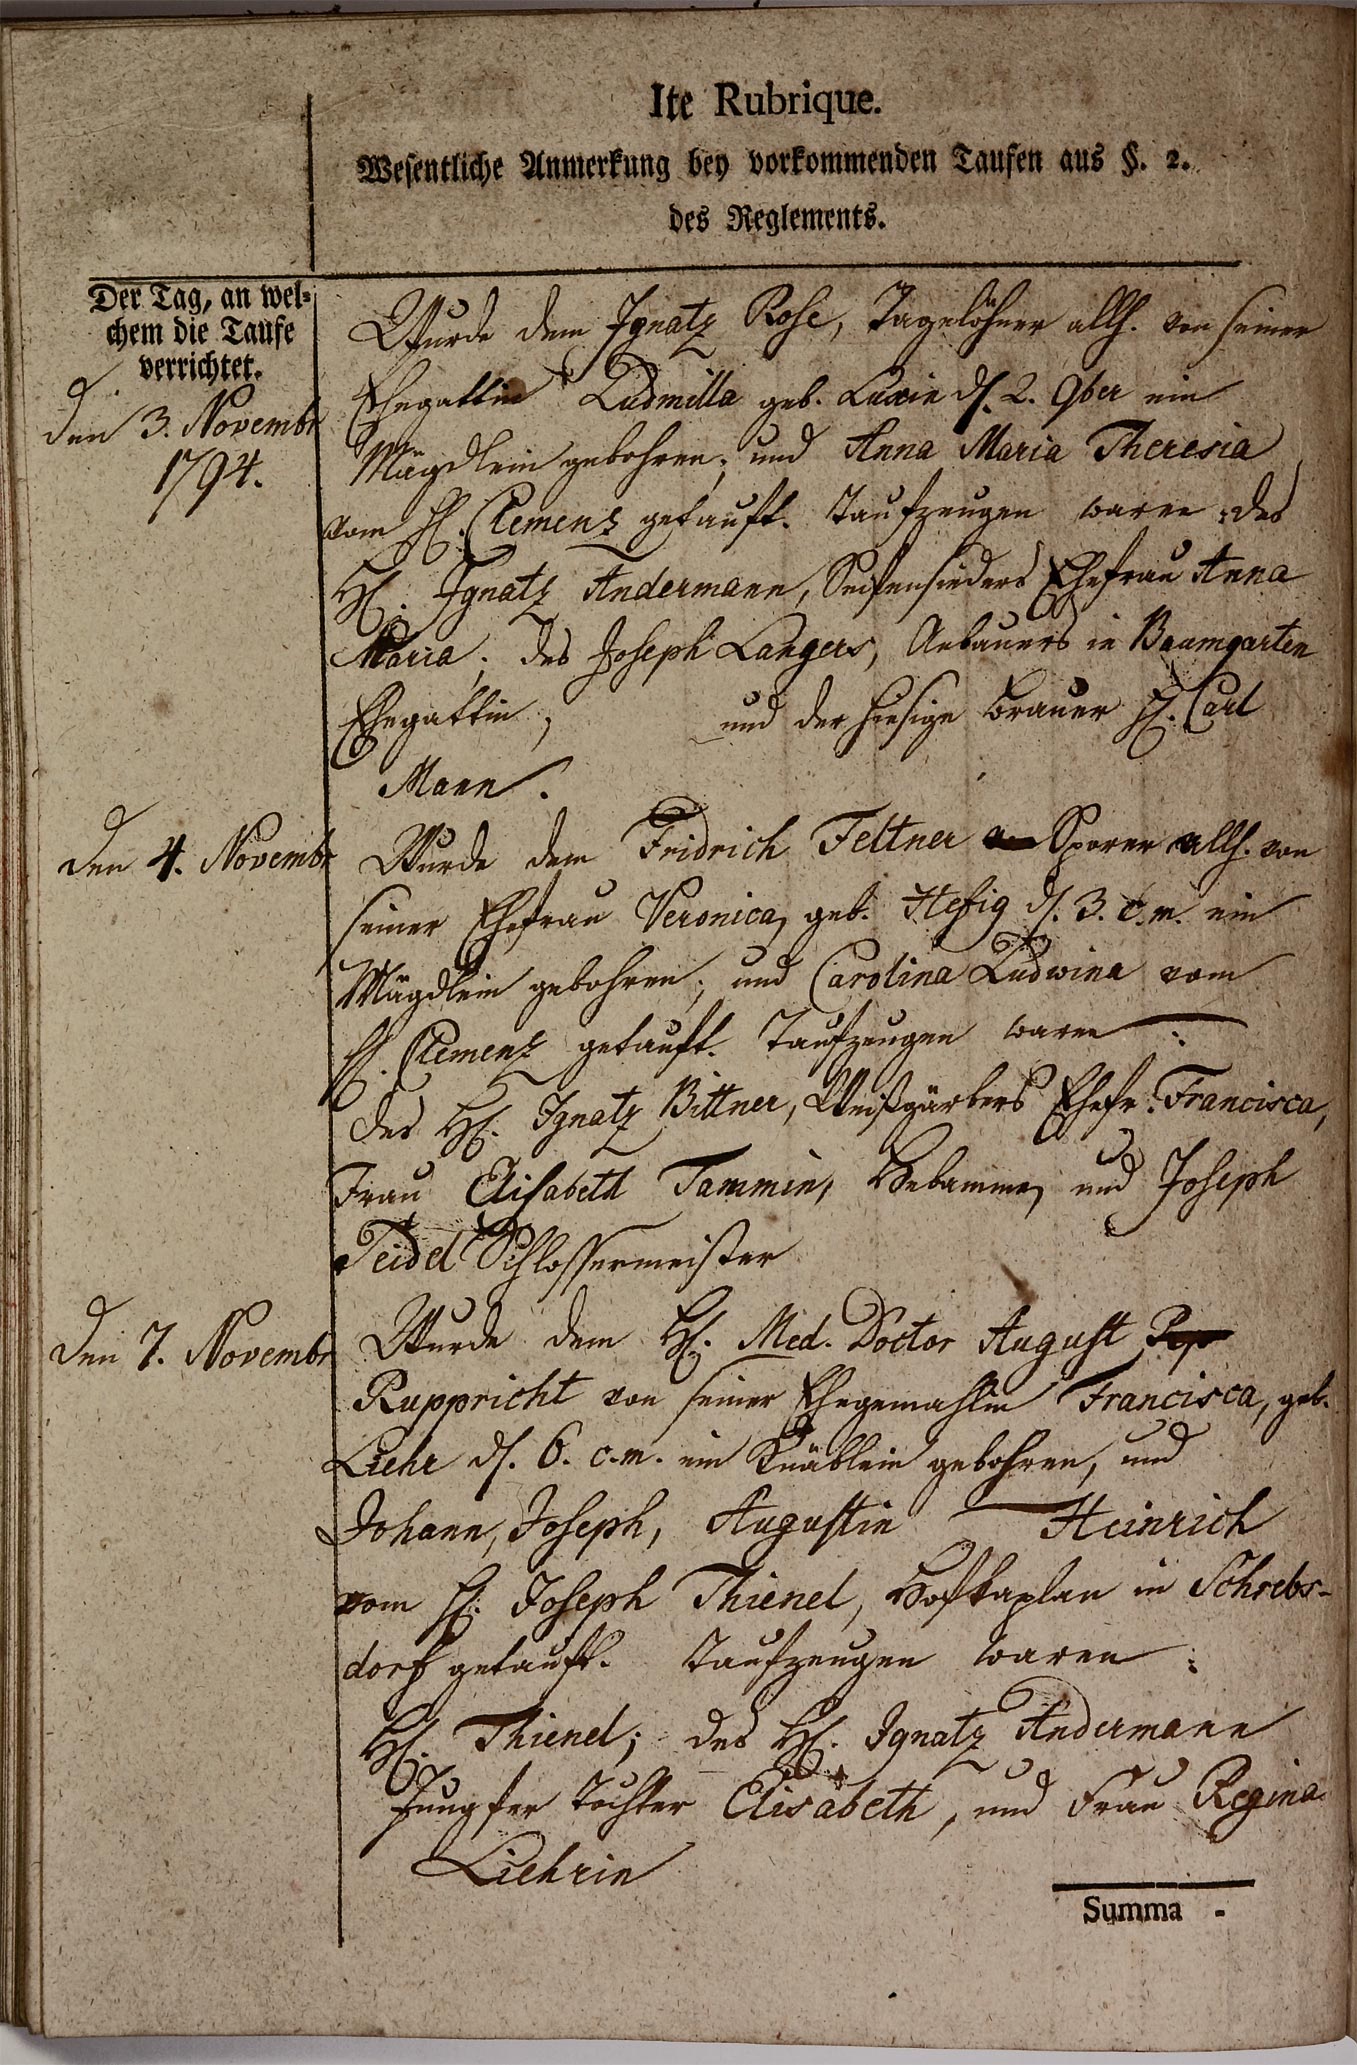 Ite Rubrique.
Wesentliche Anmerkung bey vorkommenden Taufen aus §. 2.
des Reglements.
Der Tag, an wel-
chem die Taufe
verrichtet.
den 3. Novembr
1794.
Wurde dem Ignatz Rose, Tagelöhner allh. von seiner
Ehegattin Ludmilla geb. Luxin d. 2. 9ber ein
Mägdlein gebohren; und Anna Maria Theresia
vom H. Clemens getauft. Taufzeugen waren: des
H. Ignatz Andermann, Seifensieders Ehefrau Anna
Maria; des Joseph Langers, Anbauers in Baumgarten
Ehegattin, und der hiesige Brauer H. Carl
Mann.
den 4. Novembr
Wurde dem Fridrich Feltner Sporer allh. von
seiner Ehefrau Veronica, geb. Hefig d. 3. c. m. ein
Mägdlein gebohren; und Carolina Ludwina vom
H. Clemens getauft. Taufzeugen waren:
des H. Ignatz Bittner, Weißgärbers Ehefr. Francisca,
Frau Elisabeth Tammin, Hebamme, und Joseph
Teidel Schlossermeister
den 7. Novembr
Wurde dem H. Med. Doctor August
Ruppricht von seiner Ehegemahlin Francisca, geb.
Liehr d. 6. c. m. ein Knäblein gebohren, und
Johann, Joseph, Augustin Heinrich
vom H. Joseph Thienel, Hofkaplan in Schrebs-
dorf getauft. Taufzeugen waren:
H. Thienel; des H. Ignatz Andermann
Jungfer Tochter Elisabeth, und Frau Regina
Liehrin
Summa -